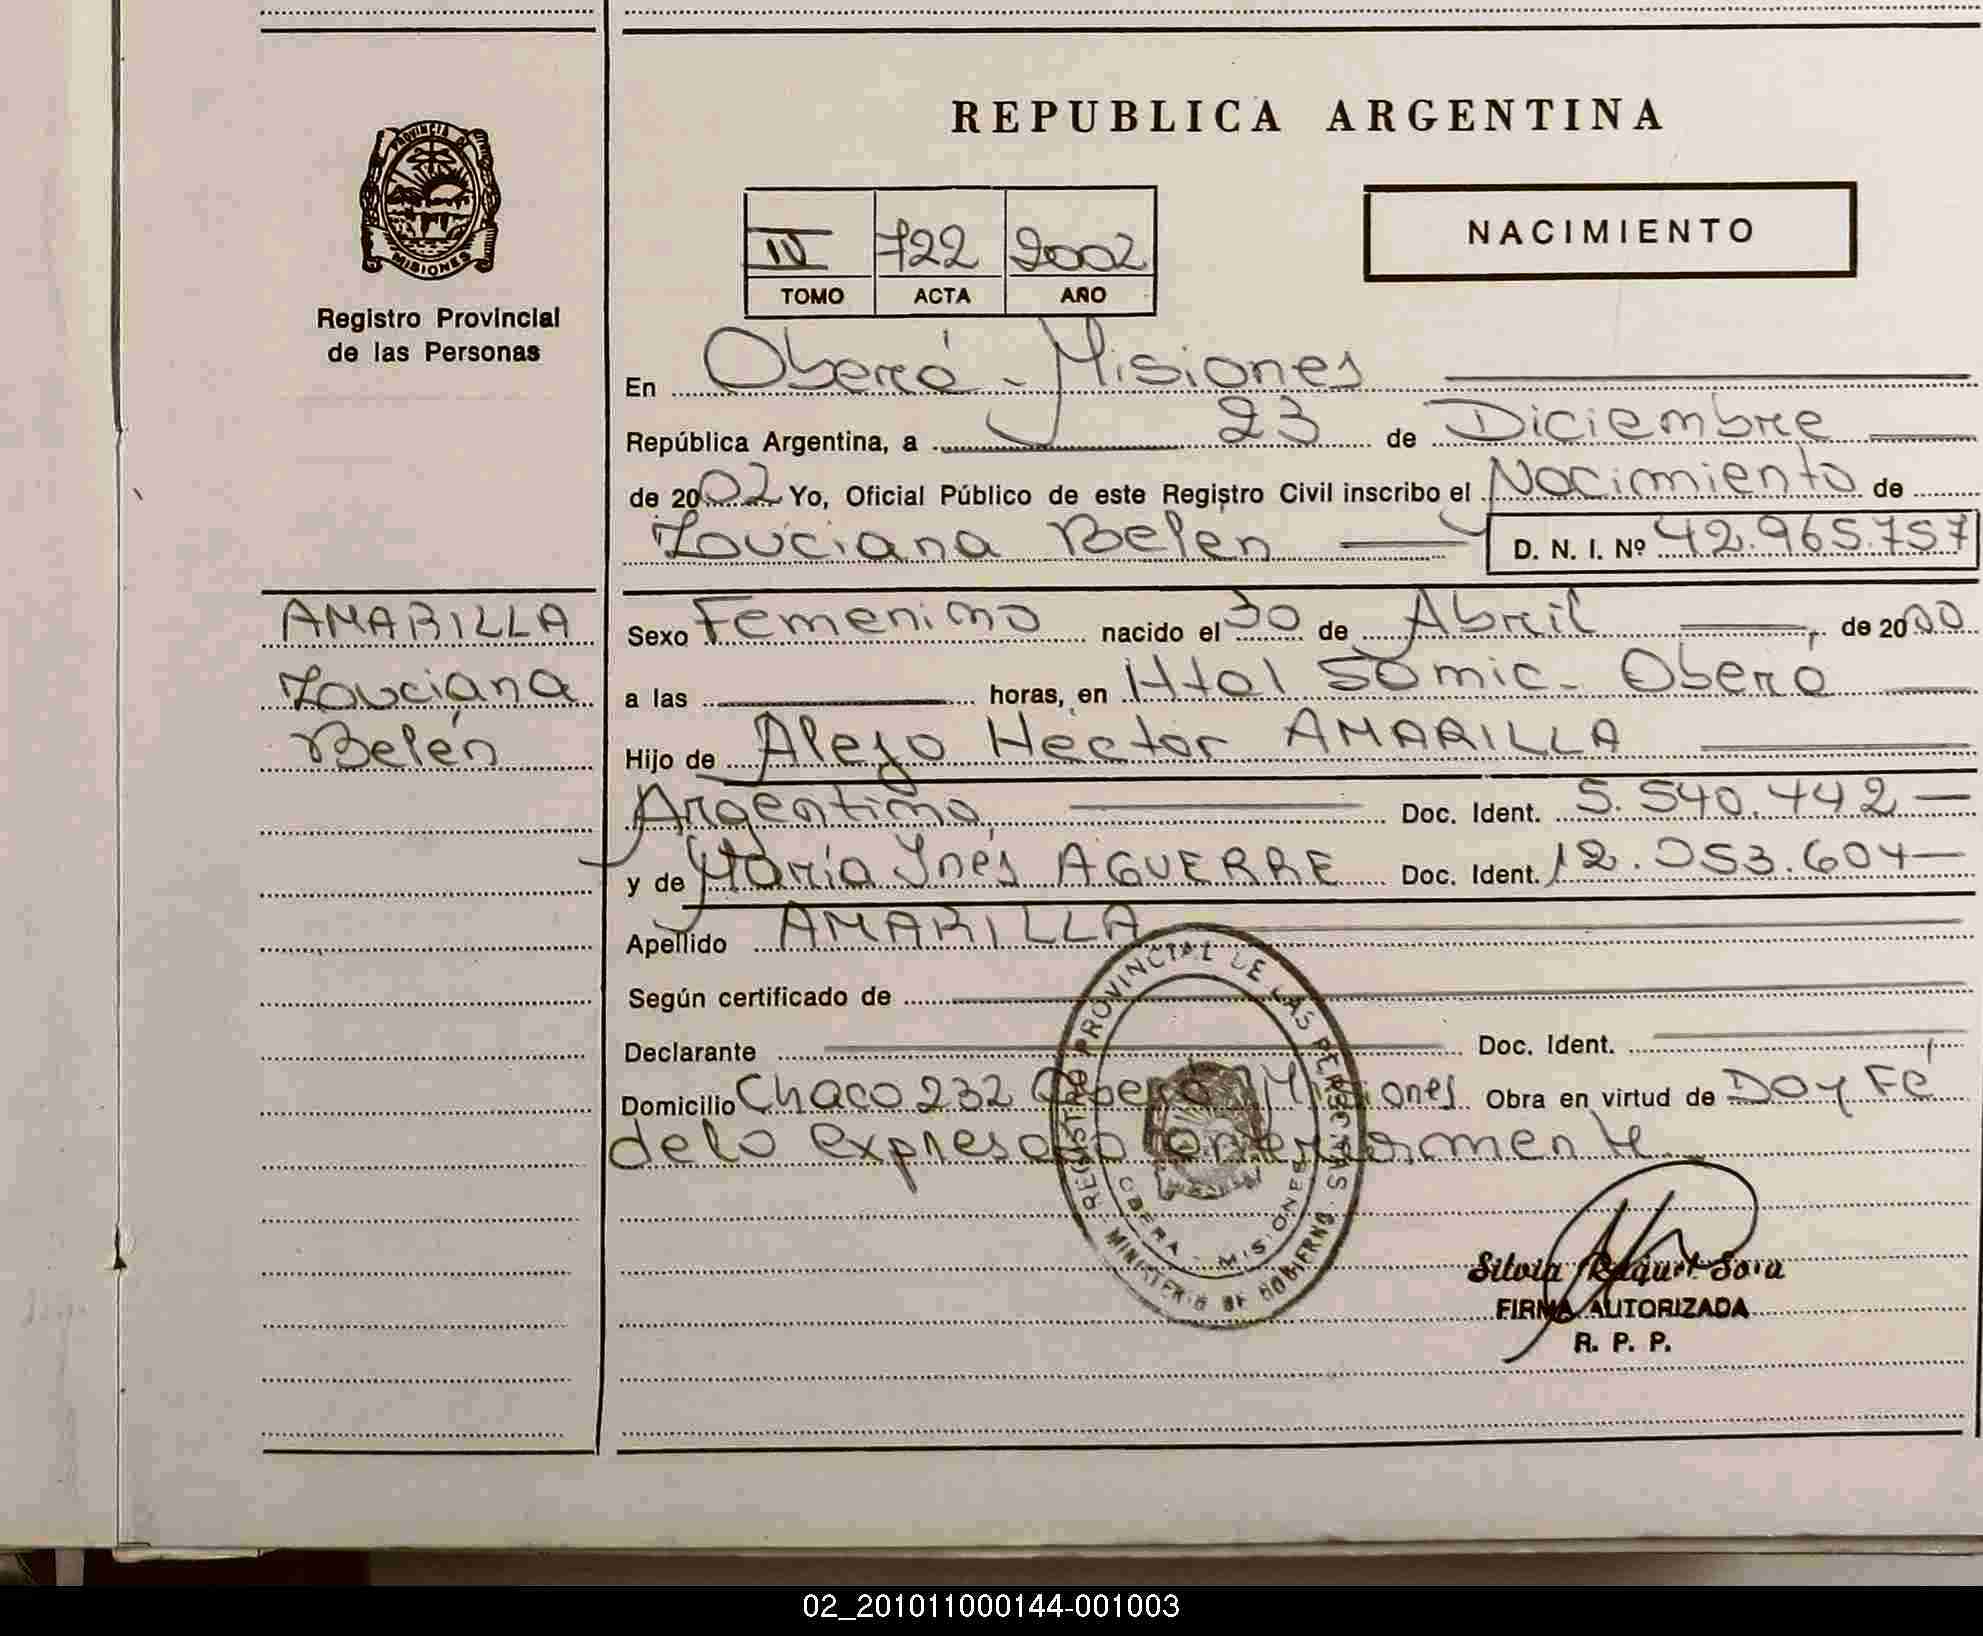 REPUBLICA ARGENTINA
PROVINCIA DE
MISIONES
Registro Provincial
de las Personas
IV 722 2002
TOMO ACTA AÑO
NACIMIENTO
En Oberá - Misiones
República Argentina, a 23 de Diciembre
de 2002 Yo, Oficial Público de este Registro Civil inscribo el Nacimiento de
Louciana Belen D. N. I. Nº 42.965.757
AMARILLA
Louciana
Belén
Sexo Femenino nacido el 30 de Abril, de 2000
a las horas, en Htal SAmic - Oberá
Hijo de Alejo Hector AMARILLA
Argentino, Doc. Ident. 5.540.442
y de María Inés AGUERRE Doc. Ident. 12.053.604
Apellido AMARILLA
Según certificado de
Declarante Doc. Ident.
Domicilio Chaco 232 Oberá Misiones Obra en virtud de Doy Fé
de lo expresado anteriormente
REGISTRO PROVINCIAL DE LAS PERSONAS
OBERA - MISIONES
MINISTERIO DE GOBIERNO
Silvia Raquel Sosa
FIRMA AUTORIZADA
R. P. P.
02_201011000144-001003